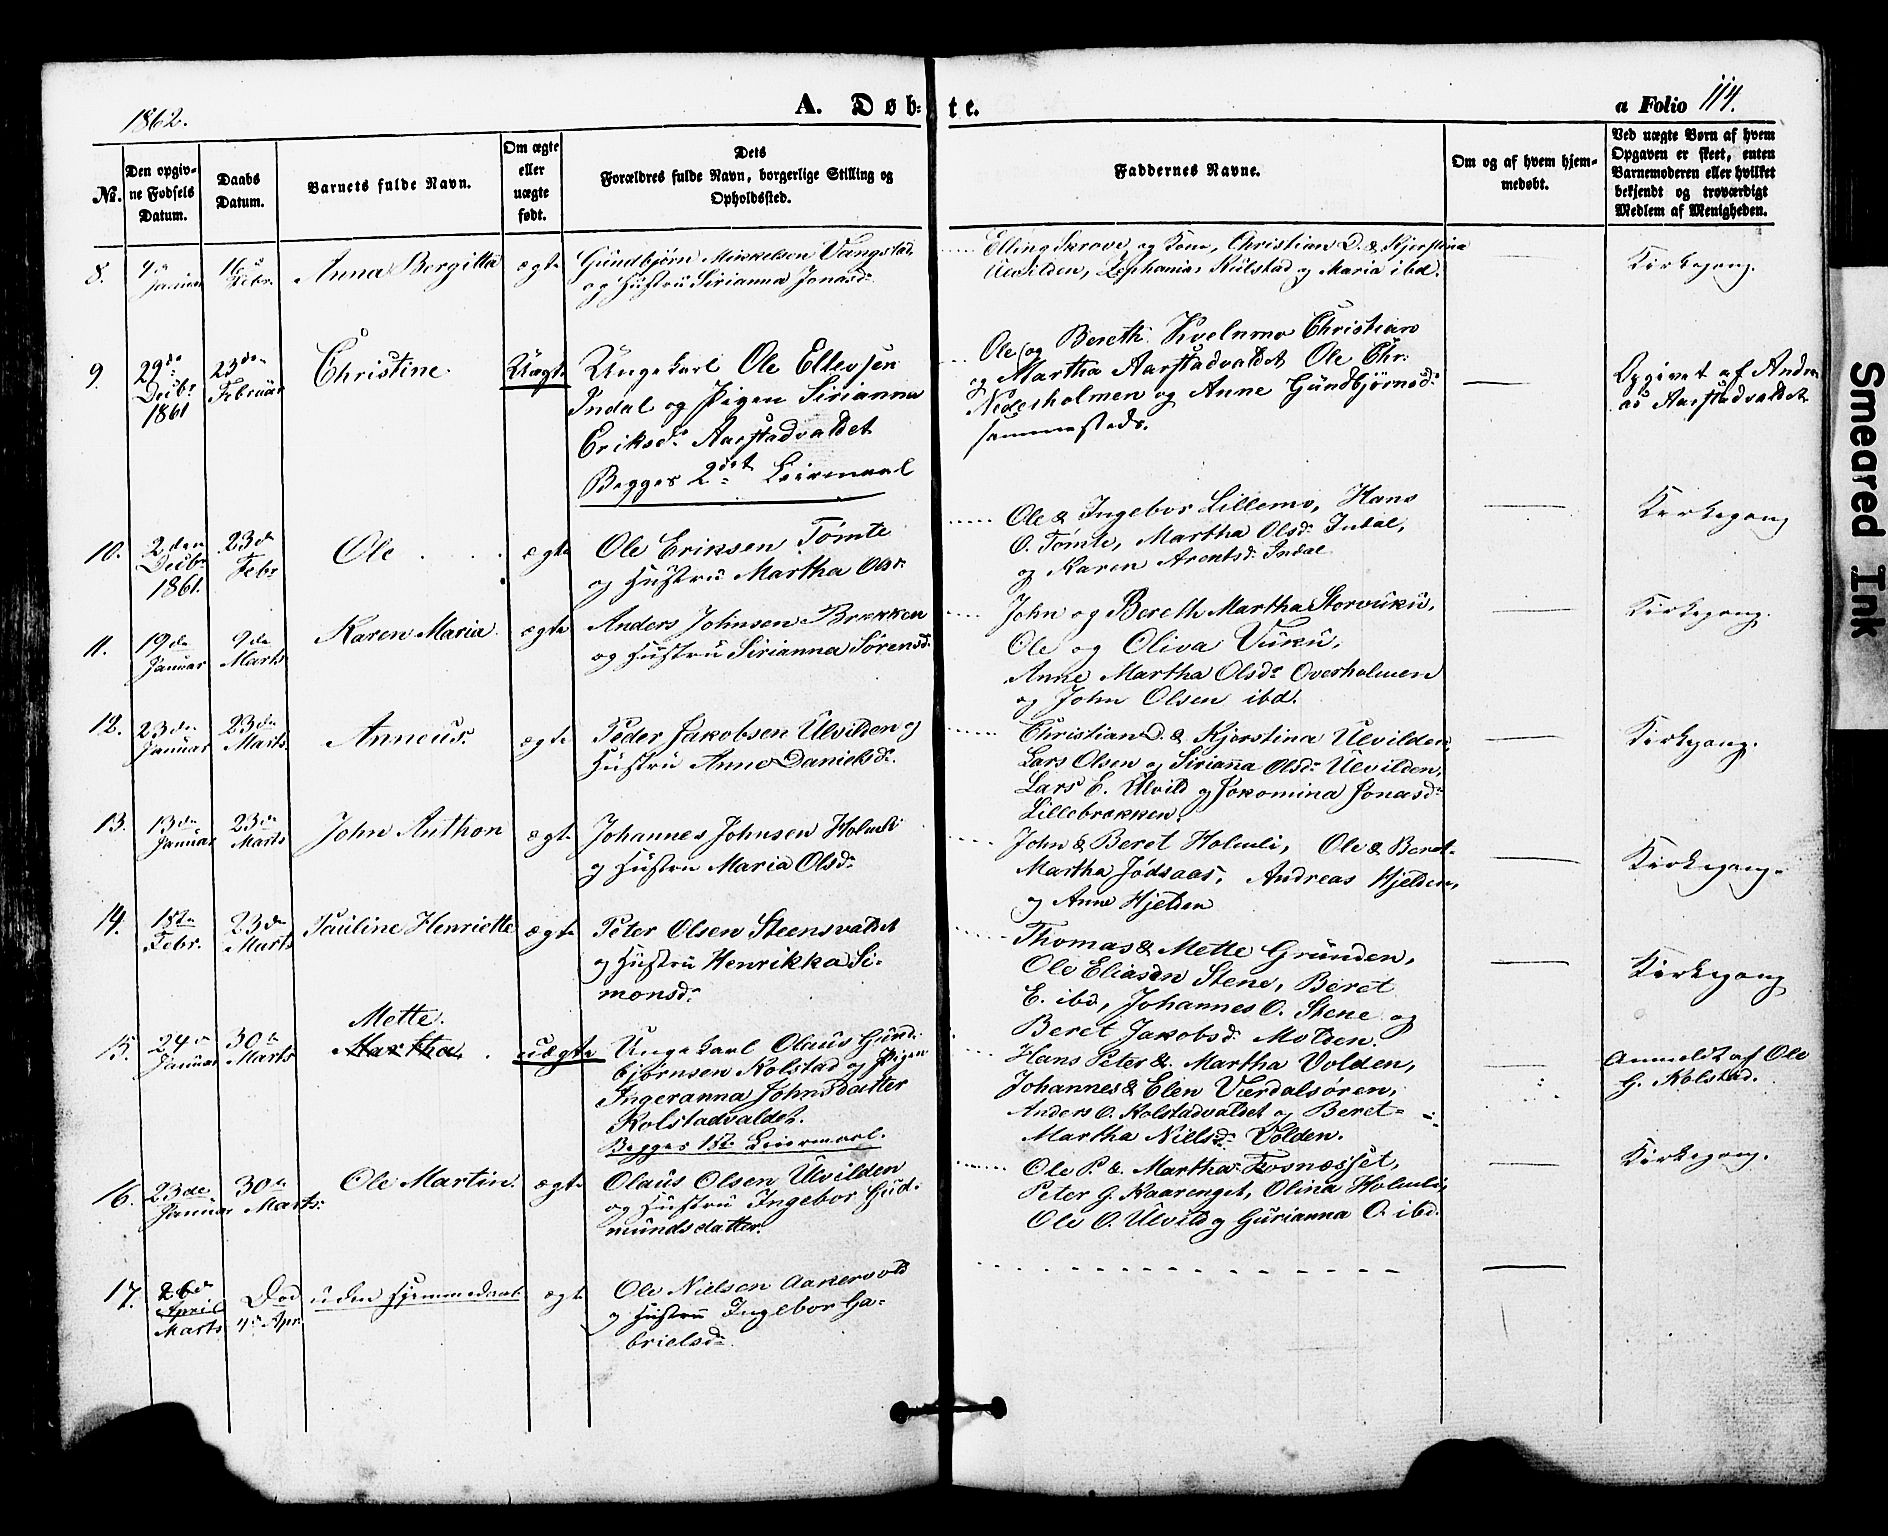 1862.
A. Døb-te.
a Folio 114.
No.
Den opgiv-
ne Fødsels
Datum.
Daabs
Datum.
Barnets fulde Navn.
Om ægte
eller
uægte
født.
Dets
Forældres fulde Navn, borgerlige Stilling og
Opholdssted.
Faddernes Navne.
Om og af hvem hjem-
medøbt.
Ved uægte Børn af hvem
Opgaven er skeet, enten
Barnemoderen eller hvilket
bekjendt og troværdigt
Medlem af Menigheden.
8.
4de
Januar
16de
Febr.
Anna Bergitta
ægte
Gundbjørn Mikkelsen Vangstad
og Hustru Sirianna Jonasd.
Elling Skrove og Kone, Christian D. & Kjerstina
Ulvilden, Zephanias Kulstad og Maria ibd.
Kirkegang.
9.
29de
Decbr.
1861
23de
Februar
Christine.
Uægte
Ungekarl Ole Ellevsen
Indal og Pigen Sirianna
Eriksdr. Aarstadvaldet
Begges 2det Leiermaal
Ole og Bereth Kvelnmo Christian
og Martha Aarstadvaldet Ole Chr.
Nederholmen og Anne Gundbjørnsd.
sammesteds.
Opgivet af Andre-
as Aarstadvaldet
10.
2den
Decbr
1861.
23de
Febr
Ole
ægte
Ole Eriksen Tømte
og Hustru Martha Olsdr.
Ole & Ingebor Lillemo, Hans
O. Tømte, Martha Olsd. Indal,
og Karen Arentsd. Indal
Kirkegang
11.
19de
Januar
9de
Marts
Karen Maria
ægte
Anders Johnsen Brekken
og Hustru Sirianna Sørensd.
John og Bereth Martha Storvuku,
Ole og Oliva Vuku,
Anne Martha Olsdr. Overholmen
og John Olsen ibd.
Kirkegang.
12.
23de
Januar
23de
Marts
Anneus.
ægte
Peder Jakobsen Ulvilden og
Hustru Anne Danielsdr.
Christian D. & Kjerstina Ulvilden,
Lars Olsen og Sirianna Olsdr. Ulvilden,
Lars E. Ulvild og Jokomina Jonasdr.
Lillebrekken.
Kirkegang.
13.
13de
Januar
23de
Marts
John Anthon
ægte
Johannes Johnsen Holmli
og Hustru Maria Olsdr.
John & Beret Holmli, Ole & Beret-
Martha Jødsaas, Andreas Hjelden,
og Anne Hjelden
Kirkegang.
14.
18de
Febr.
23de
Marts
Pauline Henriette
ægte
Peter Olsen Steensvaldet
og Hustru Henrikka Si-
monsdr.
Thomas & Mette Grunden,
Ole Eliasen Stene, Beret
E. ibd, Johannes O. Stene og
Beret Jakobsd. Molden.
Kirkegang
15.
24de
Januar
30te
Marts
Mette.
Martha.
uægte
Ungekarl Olaus Gund-
bjørnsen Kolstad og Pigen
Ingeranna Johnsdatter
Kolstadvaldet.
Begges 1ste Leiermaal.
Hans Peter & Martha Volden,
Johannes & Elen Værdalsøren,
Anders O. Kolstadvaldet og Beret-
Martha Nielsd. Volden.
Anmeldt af Ole
G. Kolstad.
16.
23de
Januar
30te
Marts.
Ole Martin.
ægte
Olaus Olsen Ulvilden
og Hustru Ingebor Gud-
mundsdatter.
Ole P. & Martha Fosnæsset,
Peter G. Kaarenget, Olina Holmli,
Ole O. Ulvild og Gurianna O. ibd.
Kirkegang.
17.
26de
April
Marts
Død uden Hjemmedaab
4de Apr.
ægte
Ole Nielsen Aakervold
og Hustru Ingebor Ga-
brielsdr.
Smeared Ink